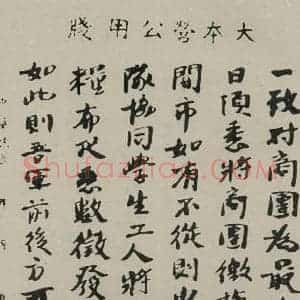 大本營公用牋
一致對商團為最
日須悉將商團繳
開市如有不從則
隊協同學生工人將
糧布尺悉數徵發
如此則吾軍前後方可
Shufazidian.com